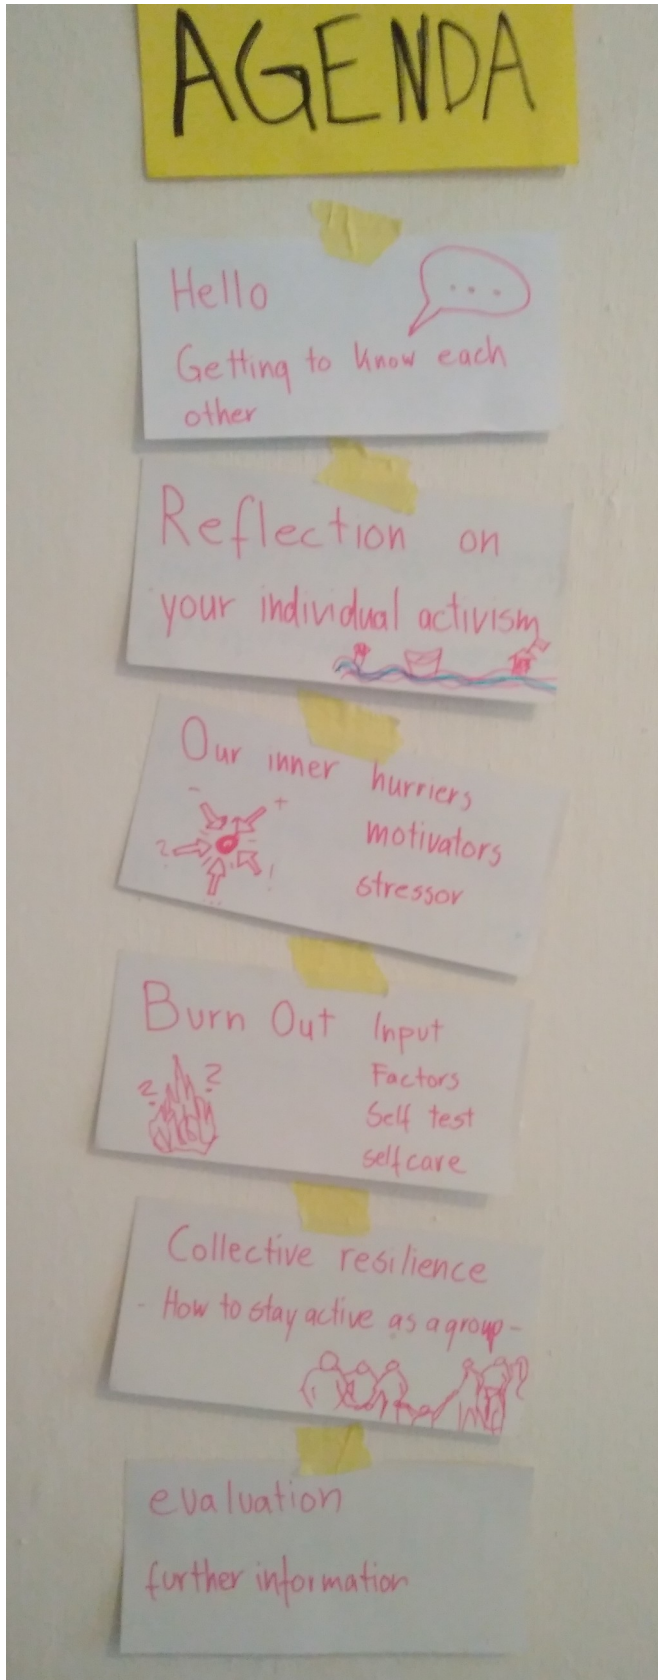 AGENDA
Hello
...
Getting to know each
other
Reflection on
your individual activism
Our inner hurriers
motivators
stressor
- +
? !
...
Burn Out Input
Factors
Self test
selfcare
? ?
Collective resilience
- How to stay active as a group -
evaluation
further information